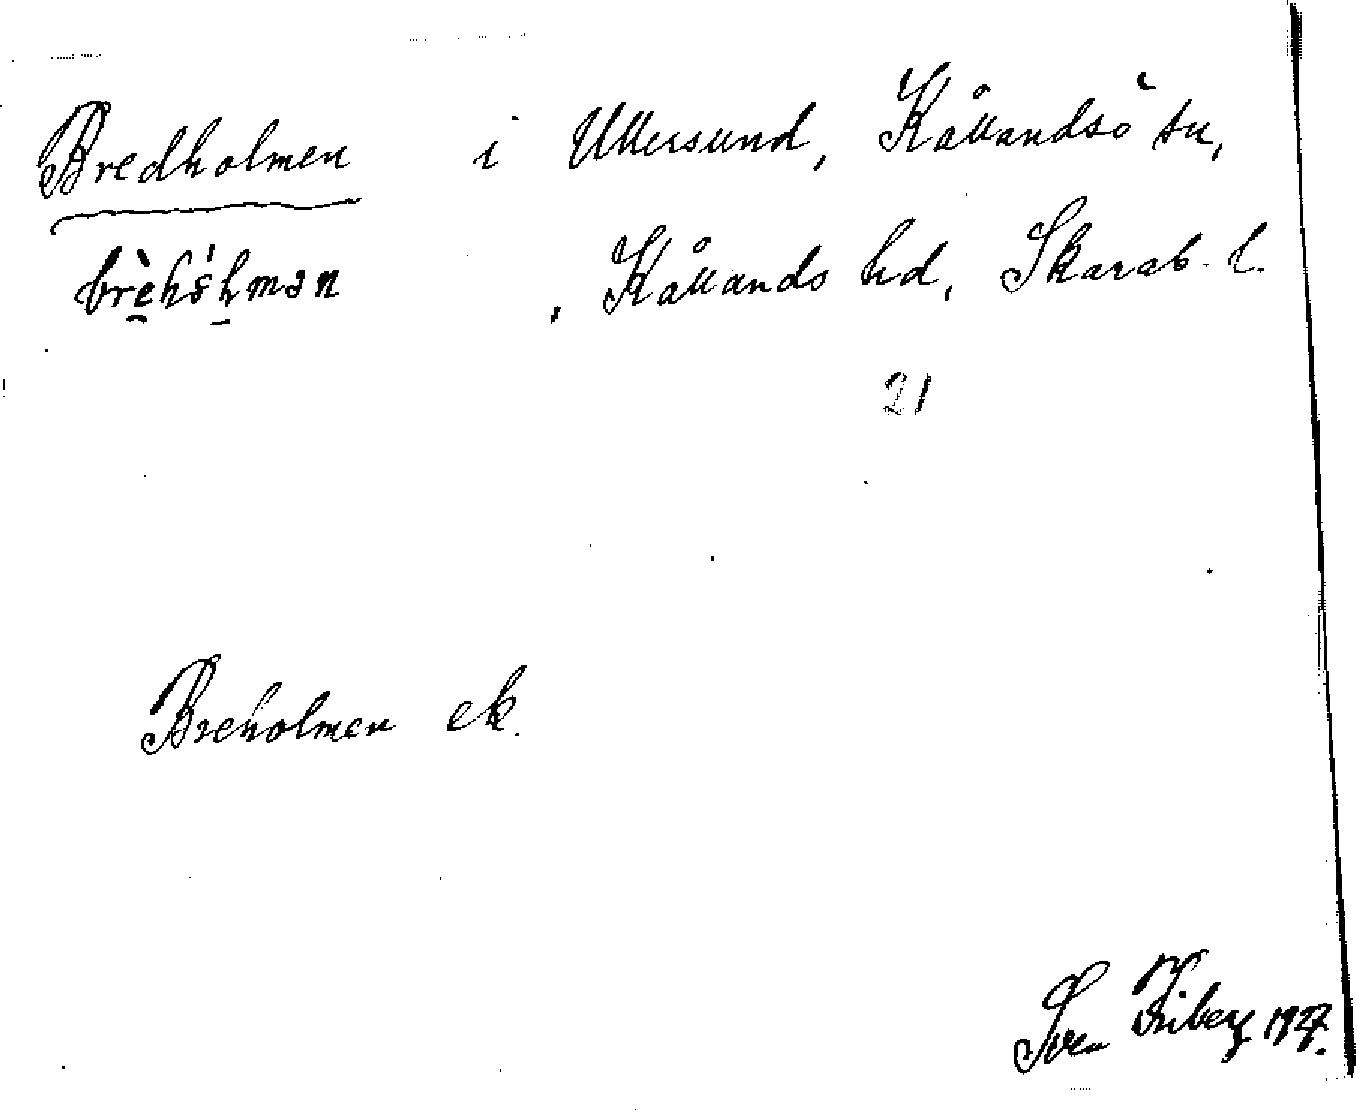 Bredholmen i Ullersund, Kållandsö sn,
, Kållands hd, Skarab. l.
21
Breholmen ek.
Sven Friberg 1927.